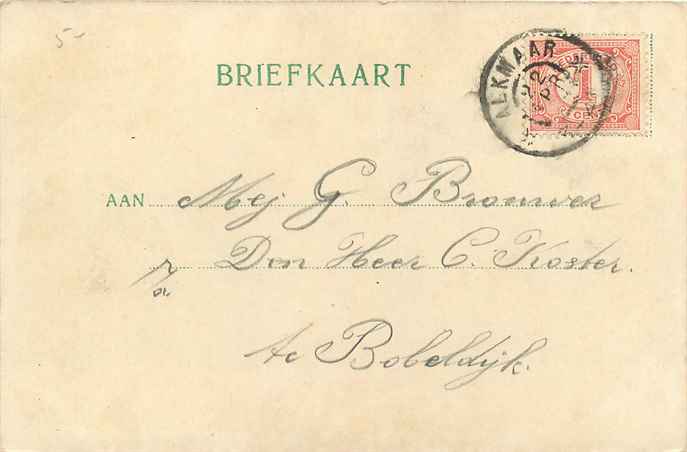 5-
BRIEFKAART
ALKMAAR
1
CENT
AAN Mej G. Brouwer
p/a Den Heer C. Koster.
te Bobeldijk.